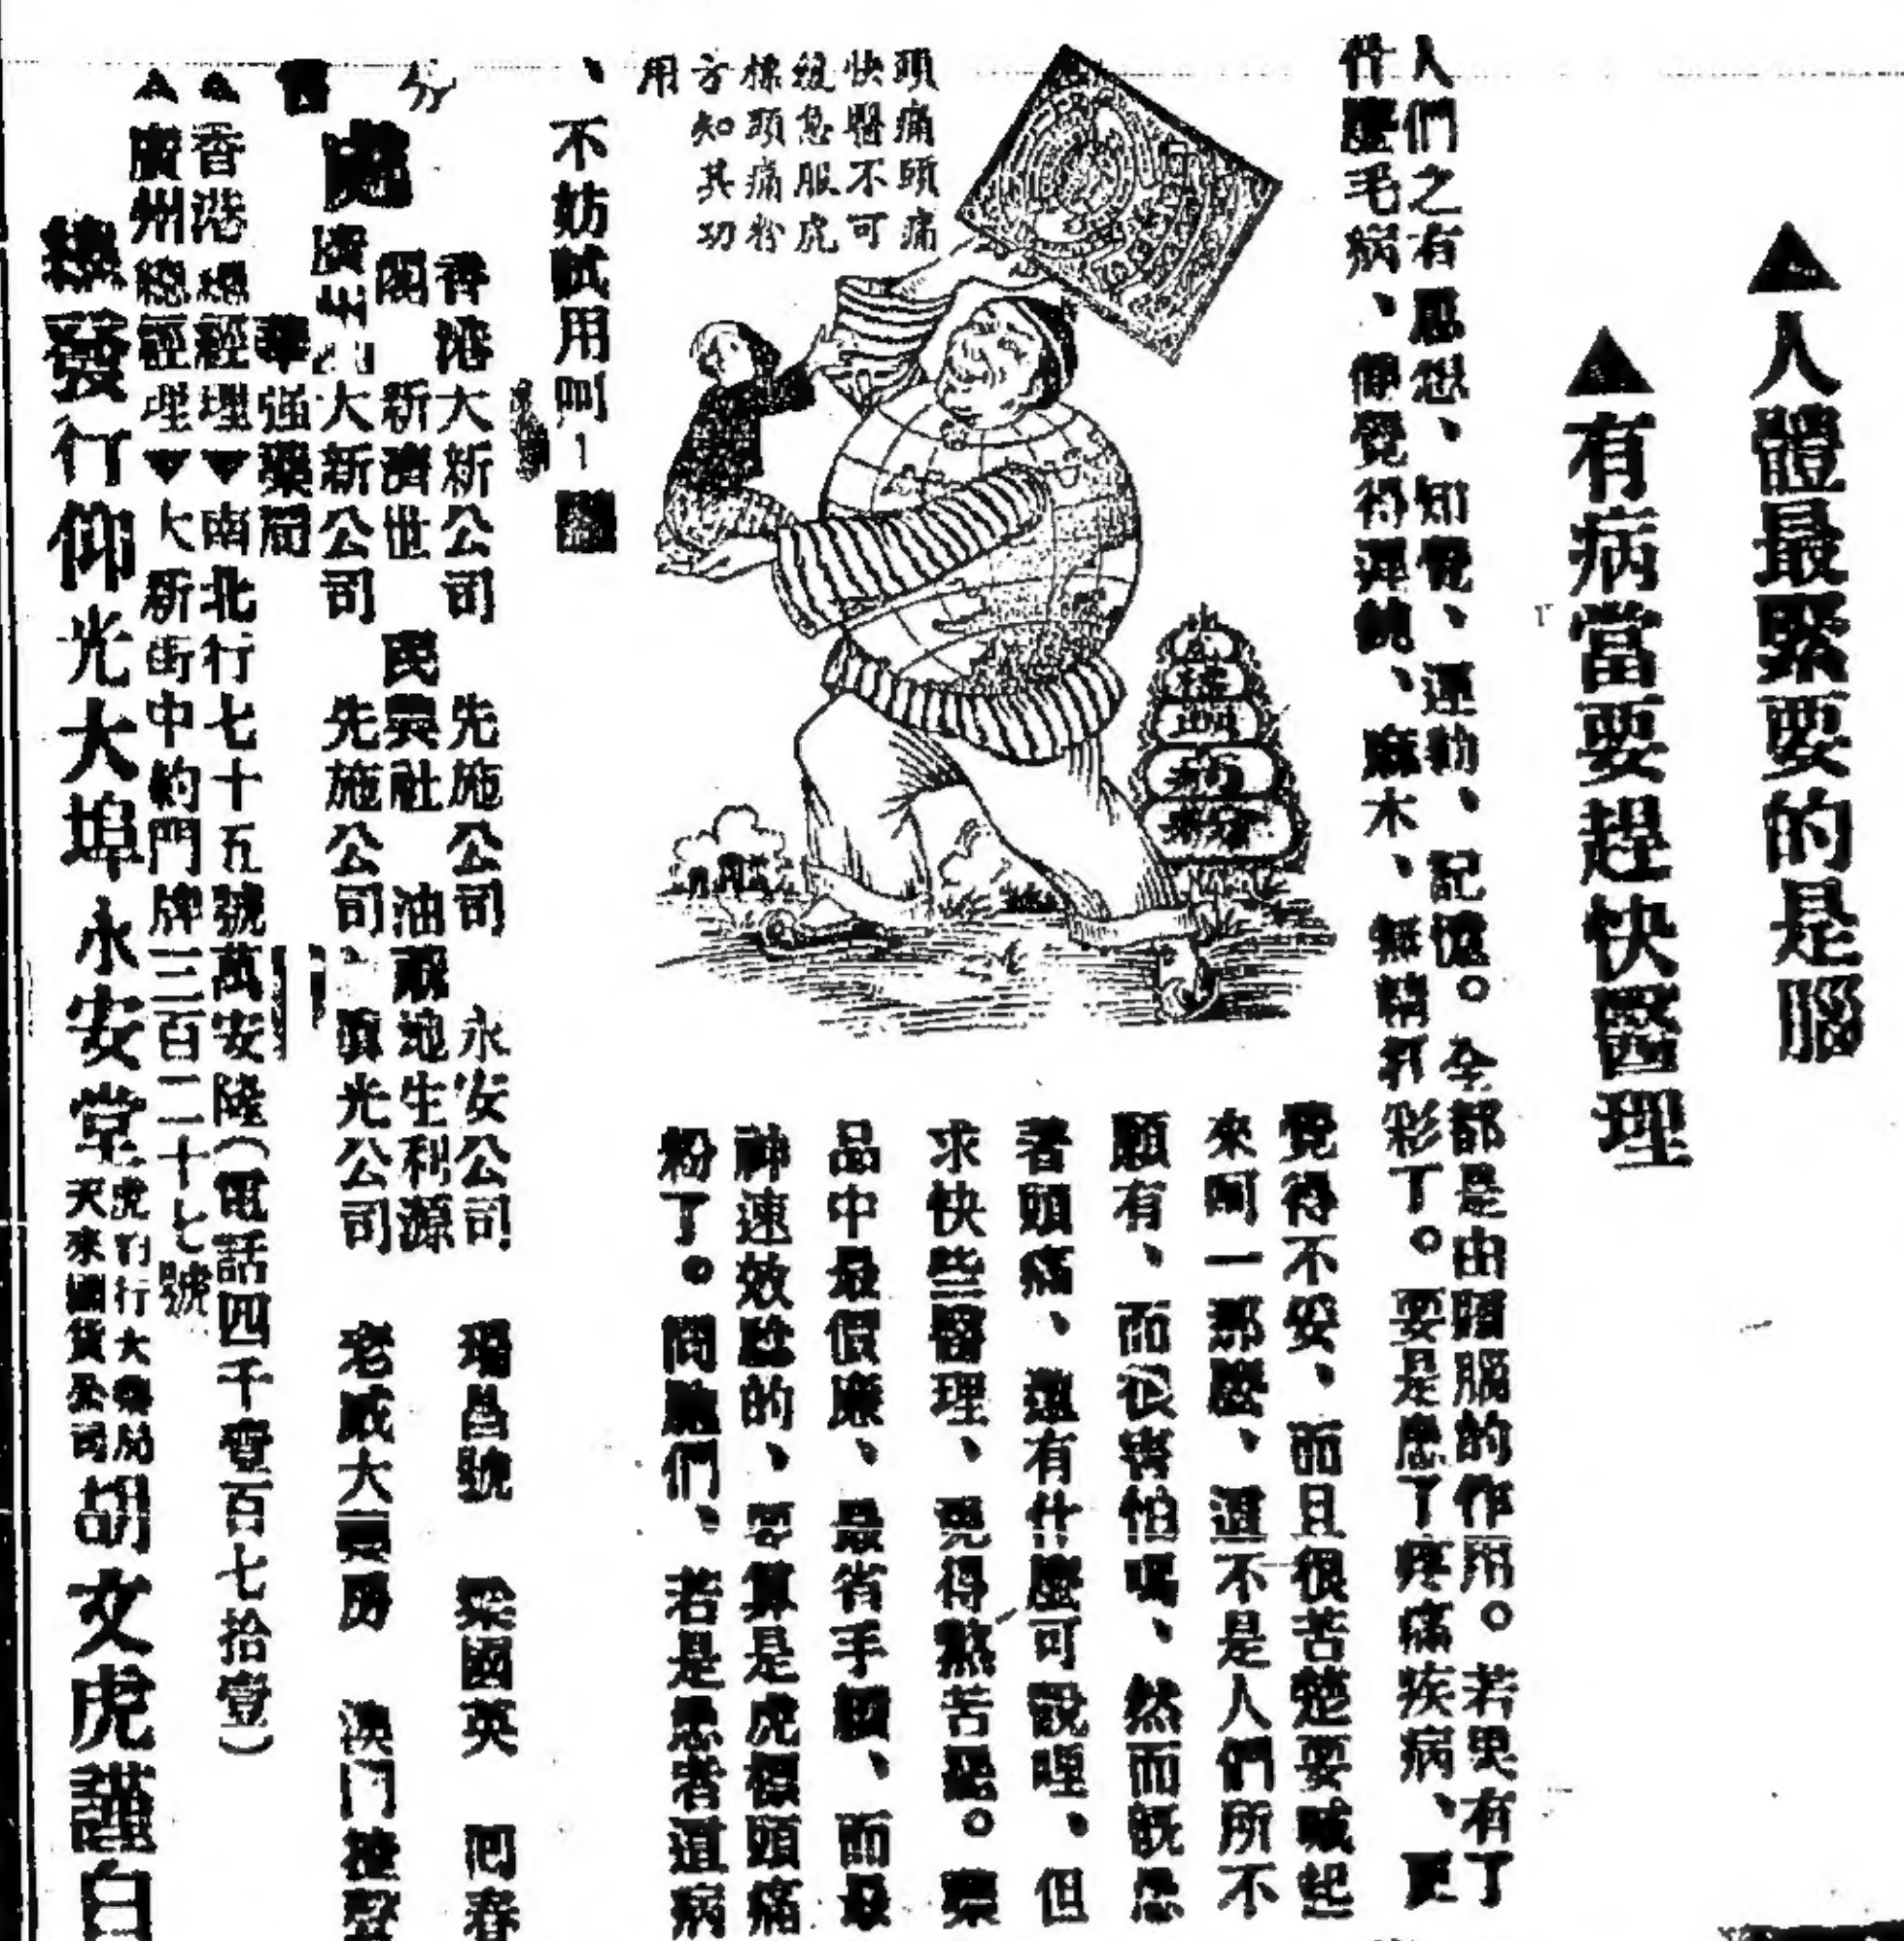 ▲人體最緊要的是腦
▲有病當要趕快醫理
人們之有思想、知覺、運動、記憶。全都是由頭腦的作用。若果有了
什麼毛病、便覺得遲鈍、麻木、無精彩了。要是患了疼痛疾病、更
覺得不妥、而且很苦楚要喊起
來呵一那麼、這不是人們所不
願有、而很害怕嗎、然而既患
著頭痛、還有什麼可說哩、但
求快些醫理、免得熬苦。藥
品中最價廉、最省手續、而最
神速效驗的、要算是虎標頭痛
粉了。問他們、若是患者這病
頭痛頭痛
快醫不可
緩急服虎
標頭痛粉
方知其功
用
頭痛粉
、不妨試用呵
分
處
香港大新公司 先施公司 永安公司 瑞昌號 梁國英 同春
新濟世 民興社 油蔴地生利源
廣州大新公司 先施公司 真光公司 老威大藥房 澳門
華強藥局
▲香港總經理▼南北行七十五號萬安隆(電話四千壹百七拾壹)
▲廣州總經理▼大新街中約門牌三百二十七號
總發行仰光大埠永安堂 虎豹行大藥局 天來國貨公司 胡文虎謹白